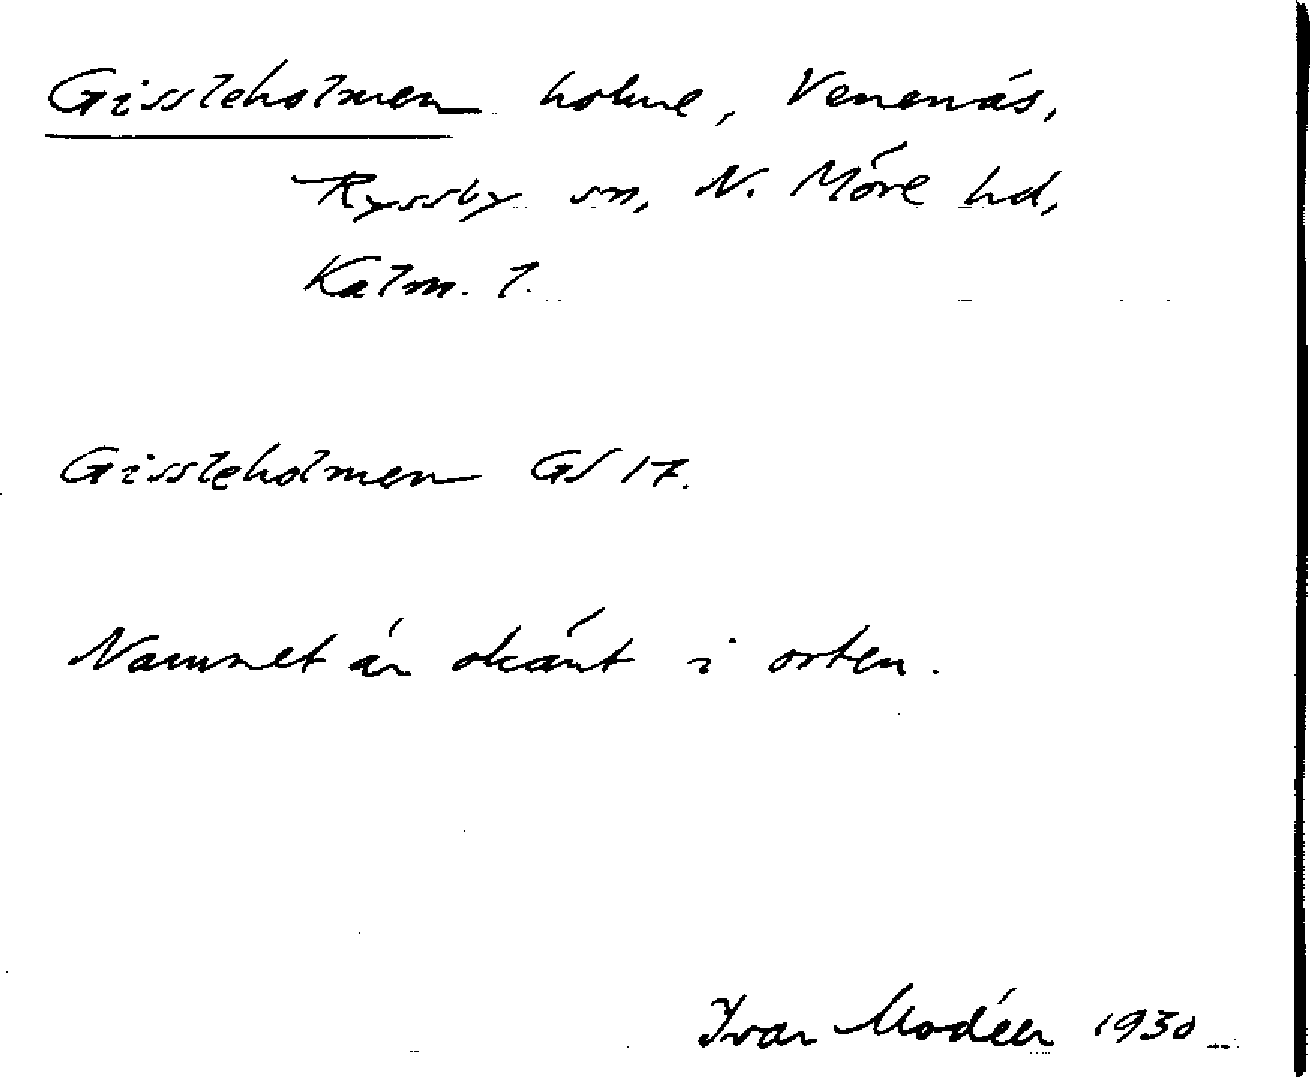 Gissleholmen holme, Venenäs,
Ryssby sn, N. Möre hd,
Kalm. l.
Gissleholmen GS 17.
Namnet är okänt i orten.
Ivar Modéer 1930